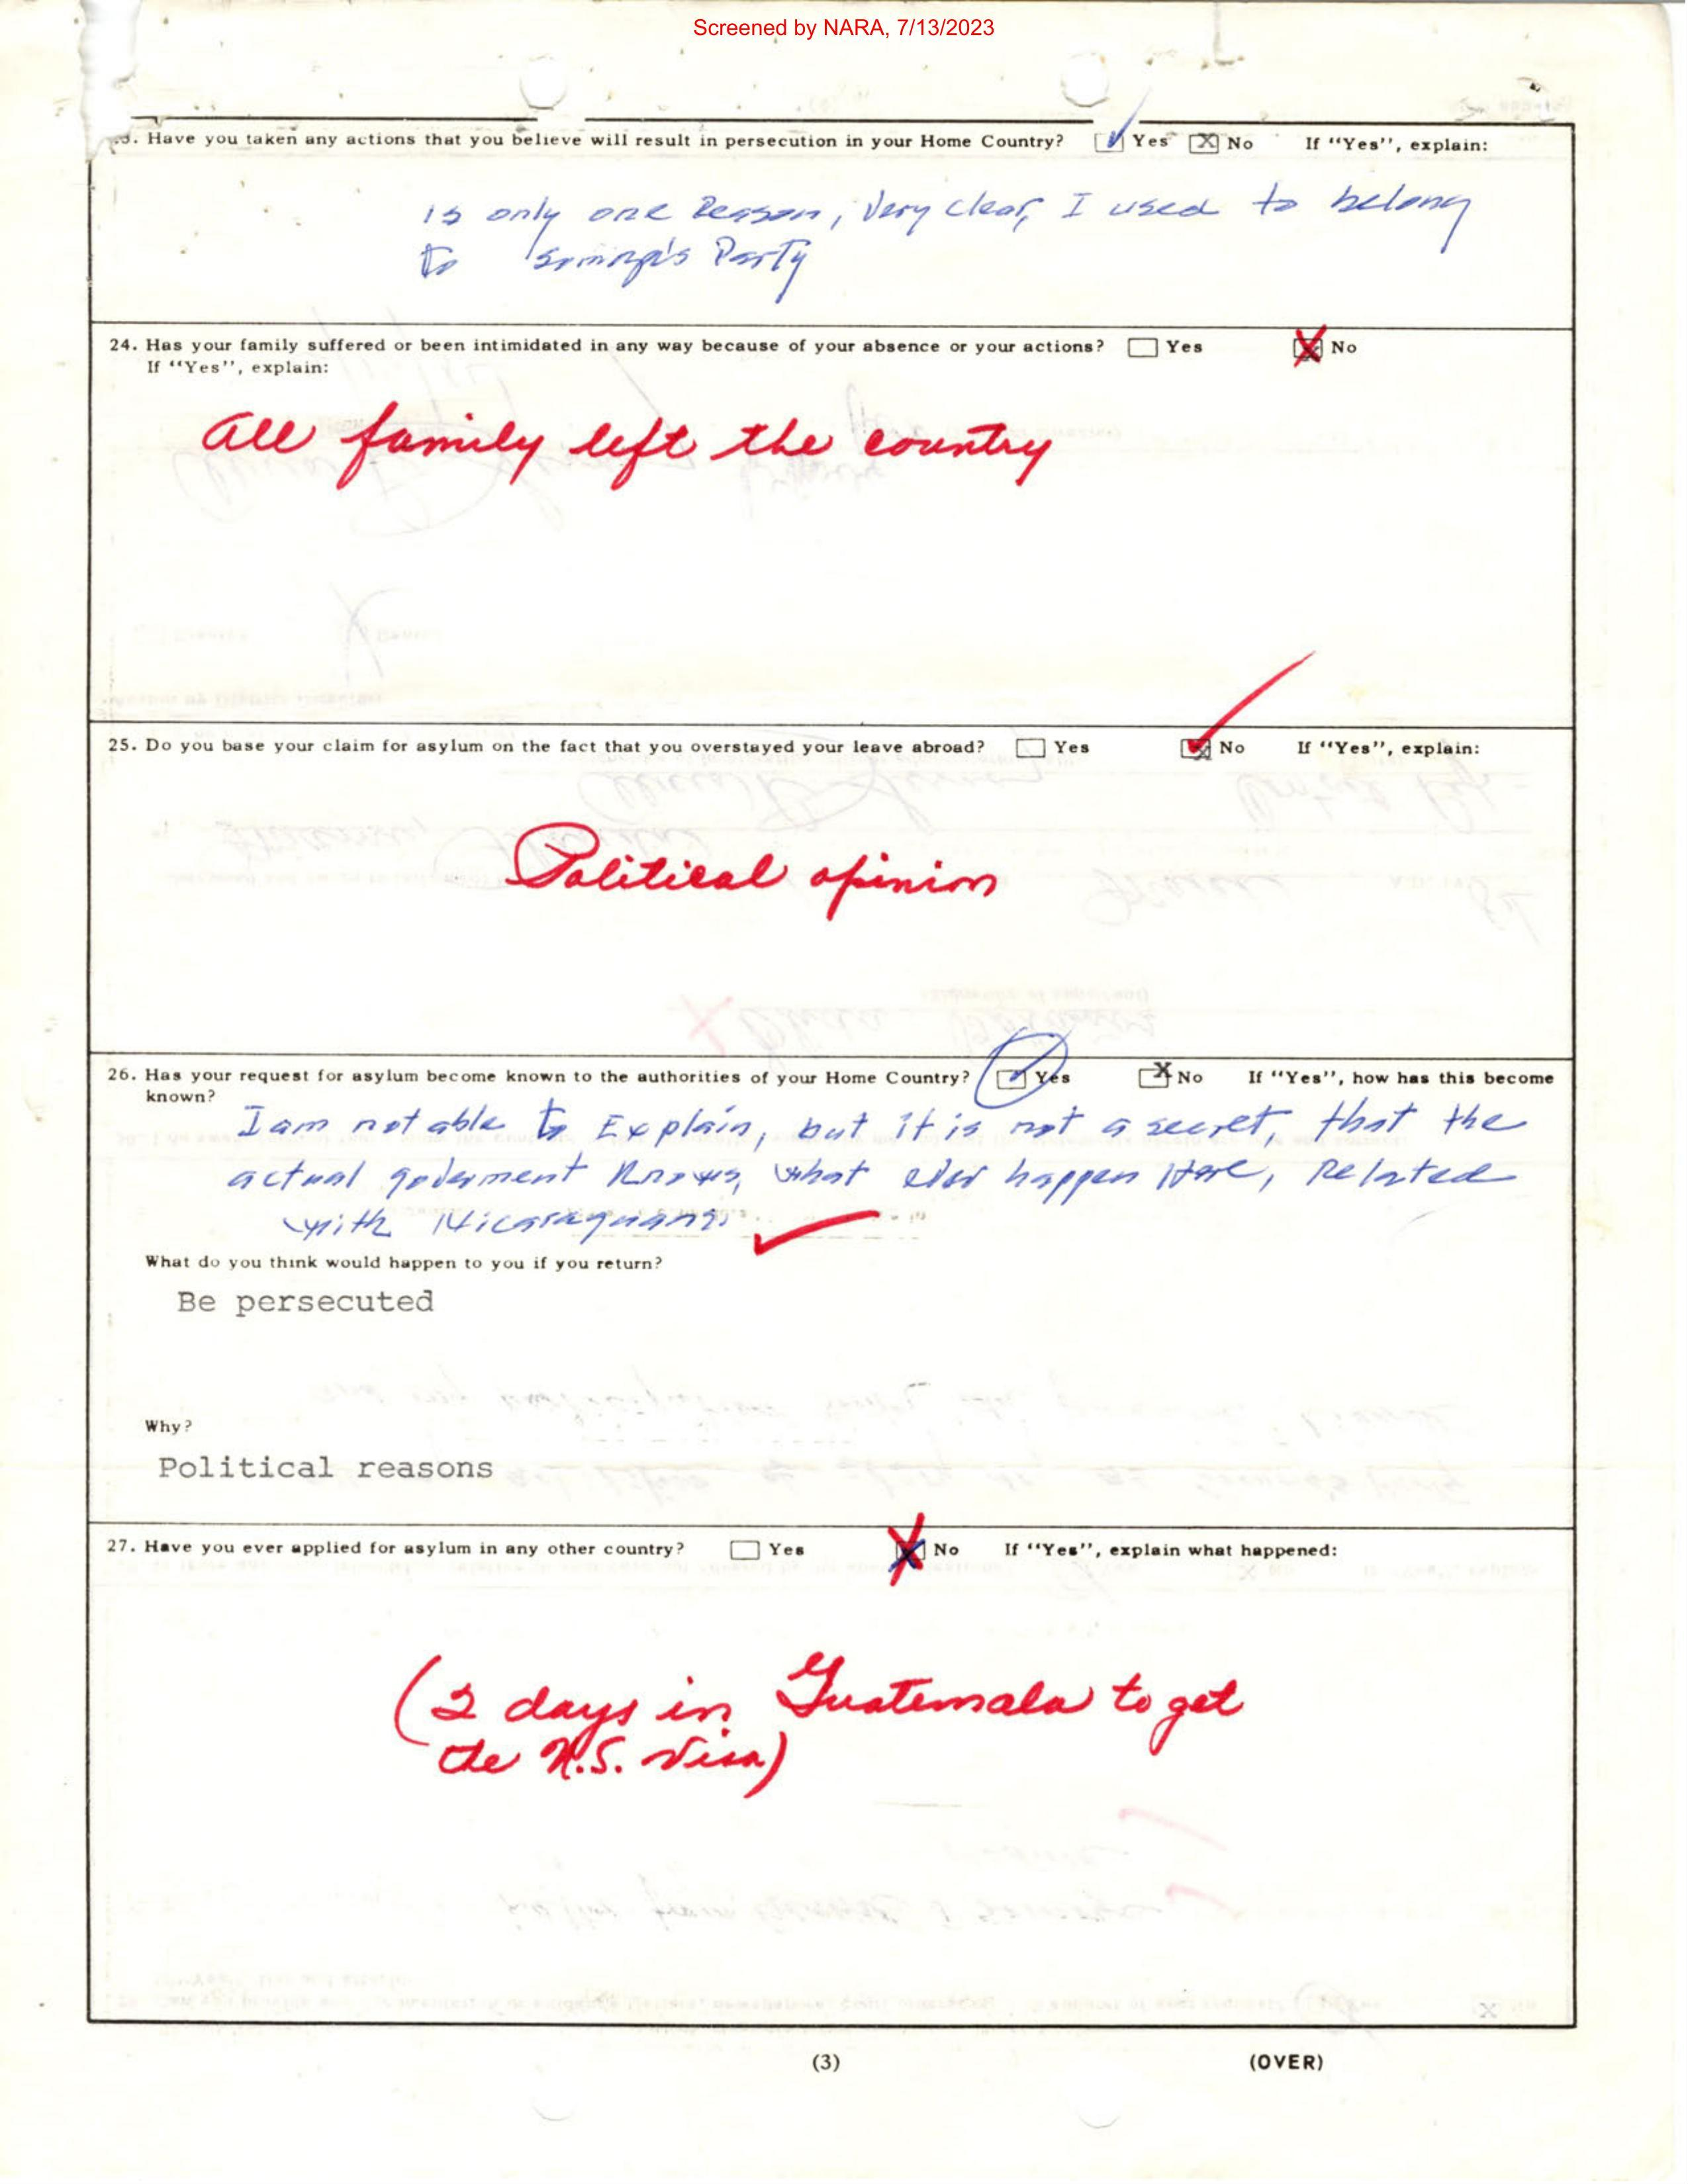 Screened by NARA, 7/13/2023
3. Have you taken any actions that you believe will result in persecution in your Home Country? Yes X No If "Yes", explain:
is only one Reason, Very clear, I used to belong
to Somoza's Party
24. Has your family suffered or been intimidated in any way because of your absence or your actions? Yes X No
If "Yes", explain:
All family left the country
25. Do you base your claim for asylum on the fact that you overstayed your leave abroad? Yes X No If "Yes", explain:
Political opinion
26. Has your request for asylum become known to the authorities of your Home Country? Yes X No If "Yes", how has this become
known?
I am not able to Explain, but it is not a secret, that the
actual goverment Knows, what ever happen Here, Related
with Nicaraguans.
What do you think would happen to you if you return?
Be persecuted
Why?
Political reasons
27. Have you ever applied for asylum in any other country? Yes X No If "Yes", explain what happened:
(2 days in Guatemala to get
the U.S. Visa)
(3) (OVER)